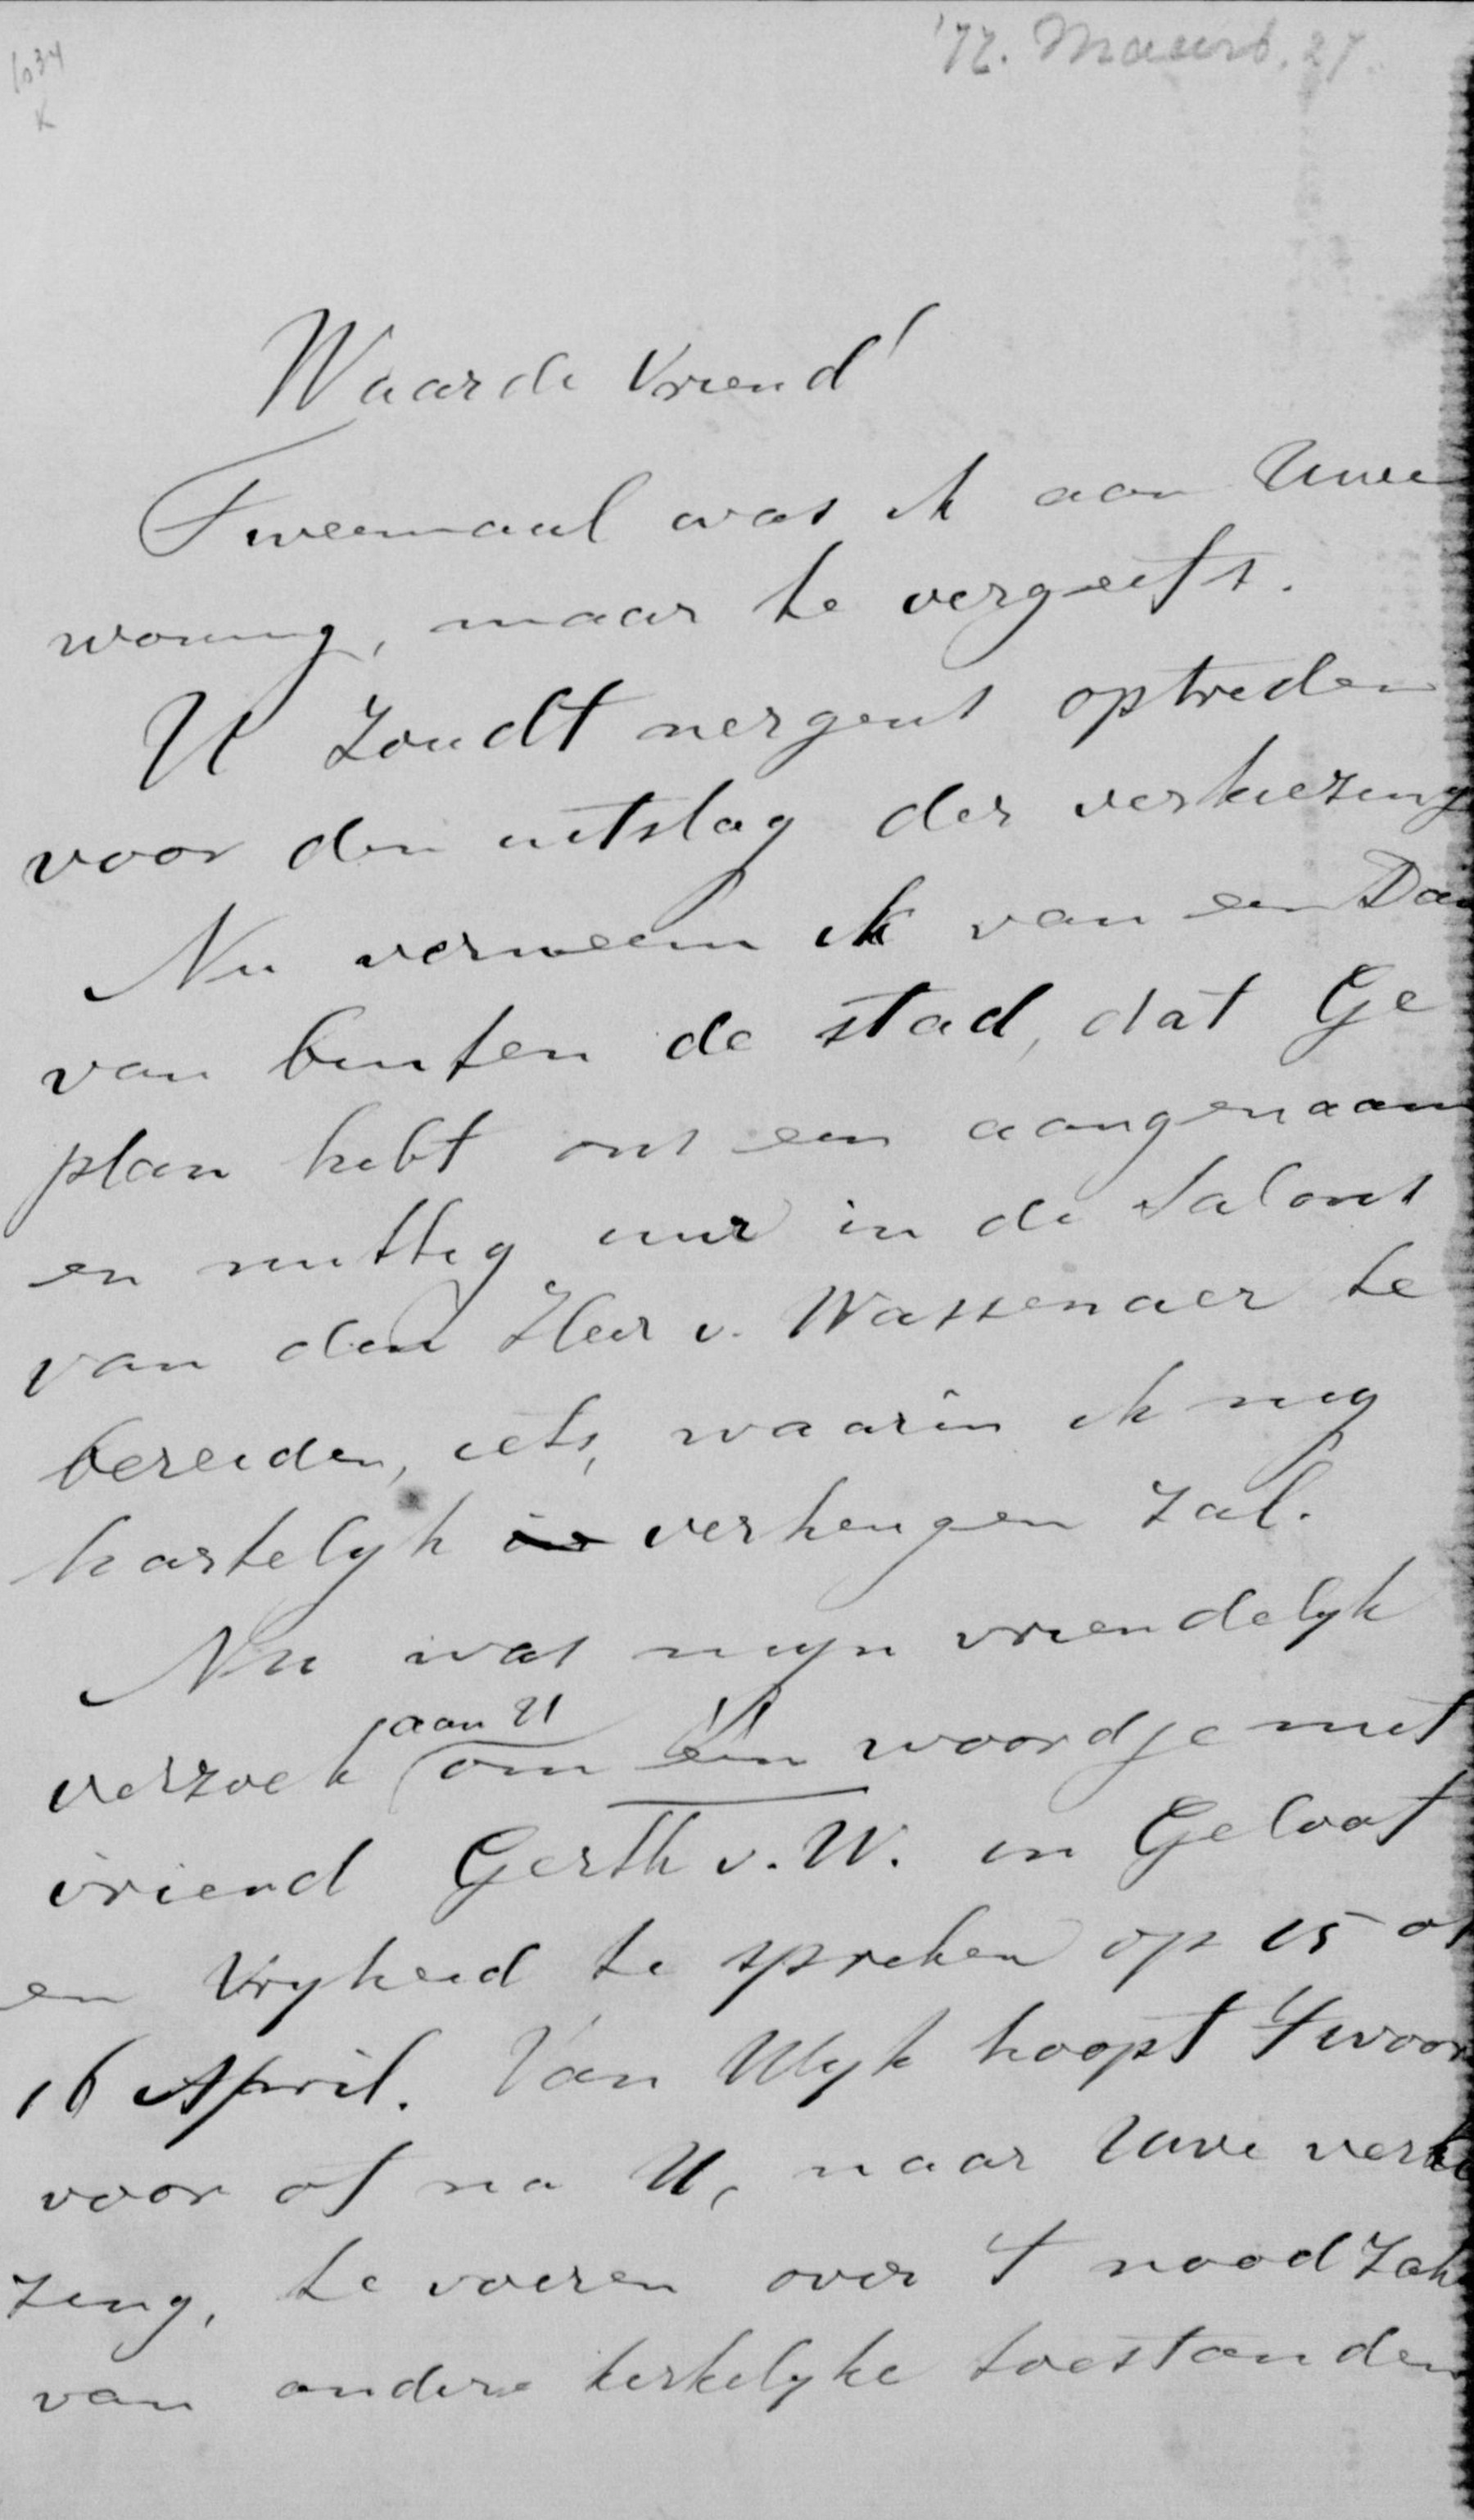 1034
K
'77. Maart. 27.
Waarde Vriend!
Tweemaal was ik aan Uwe
woning, maar te vergeefs.
U zoudt nergens optreden
voor den uitslag der verkiezing
Nu verneem ik van een Da
van buiten de stad, dat Ge
plan hebt ons een aangenaam
en nuttig uur in de Salons
van den Heer v. Wassenaer te
bereiden, iets, waarin ik mij
hartelijk verheugen zal.
Nu was mijn vriendelijk
aan U
verzoek om één woordje met
vriend Gerth v. W. in Geloof
en Vrijheid te spreken op 15 of
16 April. Van Wijk hoopt 't woor
voor of na U, naar Uwe verk
zing, te voeren over 't noodzak
van andere kerkelijke toestanden